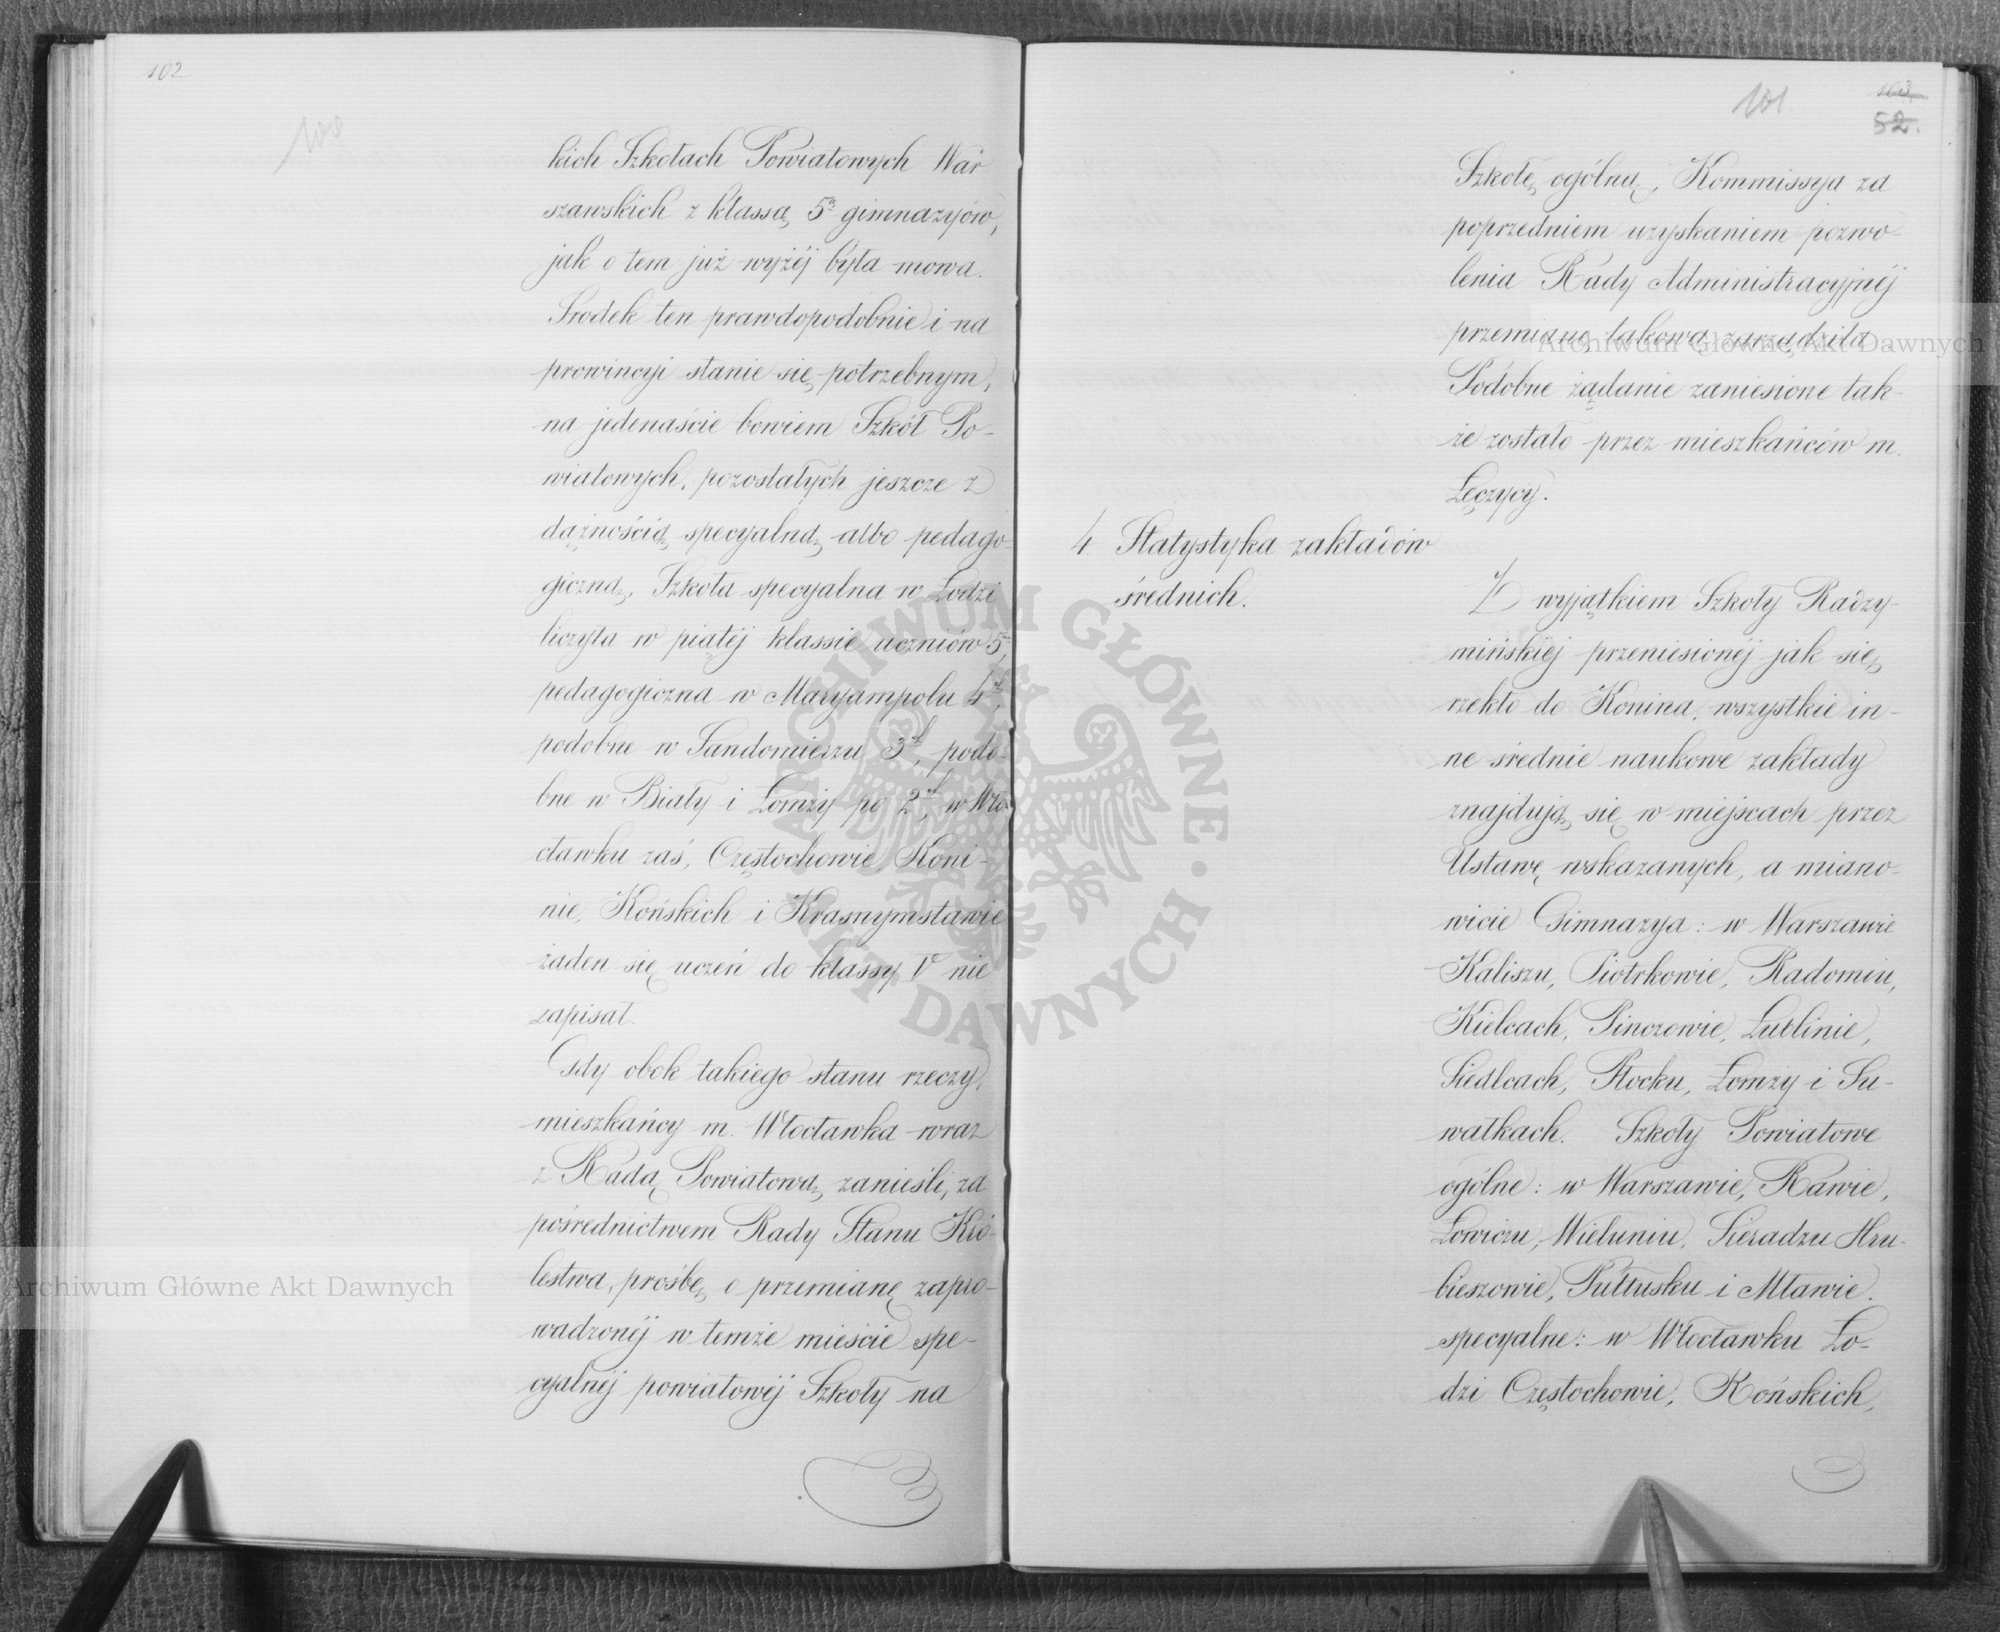 102
100
kich Szkołach Powiatowych War
szawskich z klassą 5ą gimnazyjów,
jak o tem już wyżéj była mowa.
Srodek ten prawdopodobnie i na
prowincyi stanie się potrzebnym,
na jedenaście bowiem Szkół Po-
wiatowych, pozostałych jeszcze z
dążnością specyalną albo pedago-
giczną, Szkoła specyalna w Łodzi
liczyła w piątéj klassie uczniów 5,
pedagogiczna w Maryampolu 4ch,
podobne w Sandomierzu 3ch, podo-
bne w Biały i Łomży po 2ch, w Wło
cławku zaś, Częstochowie, Koni-
nie, Końskich i Krasnymstawie
żaden się uczeń do klassy V nie
zapisał.
Gdy obok takiego stanu rzeczy,
mieszkańcy m. Włocławka wraz
z Radą Powiatową, zanieśli, za
pośrednictwem Rady Stanu Kró-
lestwa, prośbę, o przemianę zapro-
wadzonéj w temże mieście spe-
cyalnéj powiatowéj Szkoły na
101
103.
52.
Szkołę ogólną, Kommissya za
poprzedniem uzyskaniem pozwo-
lenia Rady Administracyjnéj
przemianę takową zarządziła.
Podobne żądanie zaniesione tak-
że zostało przez mieszkańców m.
Łęczycy.
4 Statystyka zakładów
średnich.
Z wyjątkiem Szkoły Radzy-
mińskiéj przeniesionéj jak się
rzekło do Konina, wszystkie in-
ne średnie naukowe zakłady
znajdują się w miejscach przez
Ustawę wskazanych, a miano-
wicie Gimnazya: w Warszawie
Kaliszu, Piotrkowie, Radomiu,
Kielcach, Pinczowie, Lublinie,
Siedlcach, Płocku, Łomży i Su-
wałkach. Szkoły Powiatowe
ogólne: w Warszawie, Rawie,
Łowiczu, Wieluniu, Sieradzu Hru-
bieszowie, Pułtusku i Mławie.
specyalne: w Włocławku Ło-
dzi Częstochowie, Końskich,
Archiwum Główne Akt Dawnych
Archiwum Główne Akt Dawnych
ARCHIWUM GŁÓWNE · AKT DAWNYCH ·